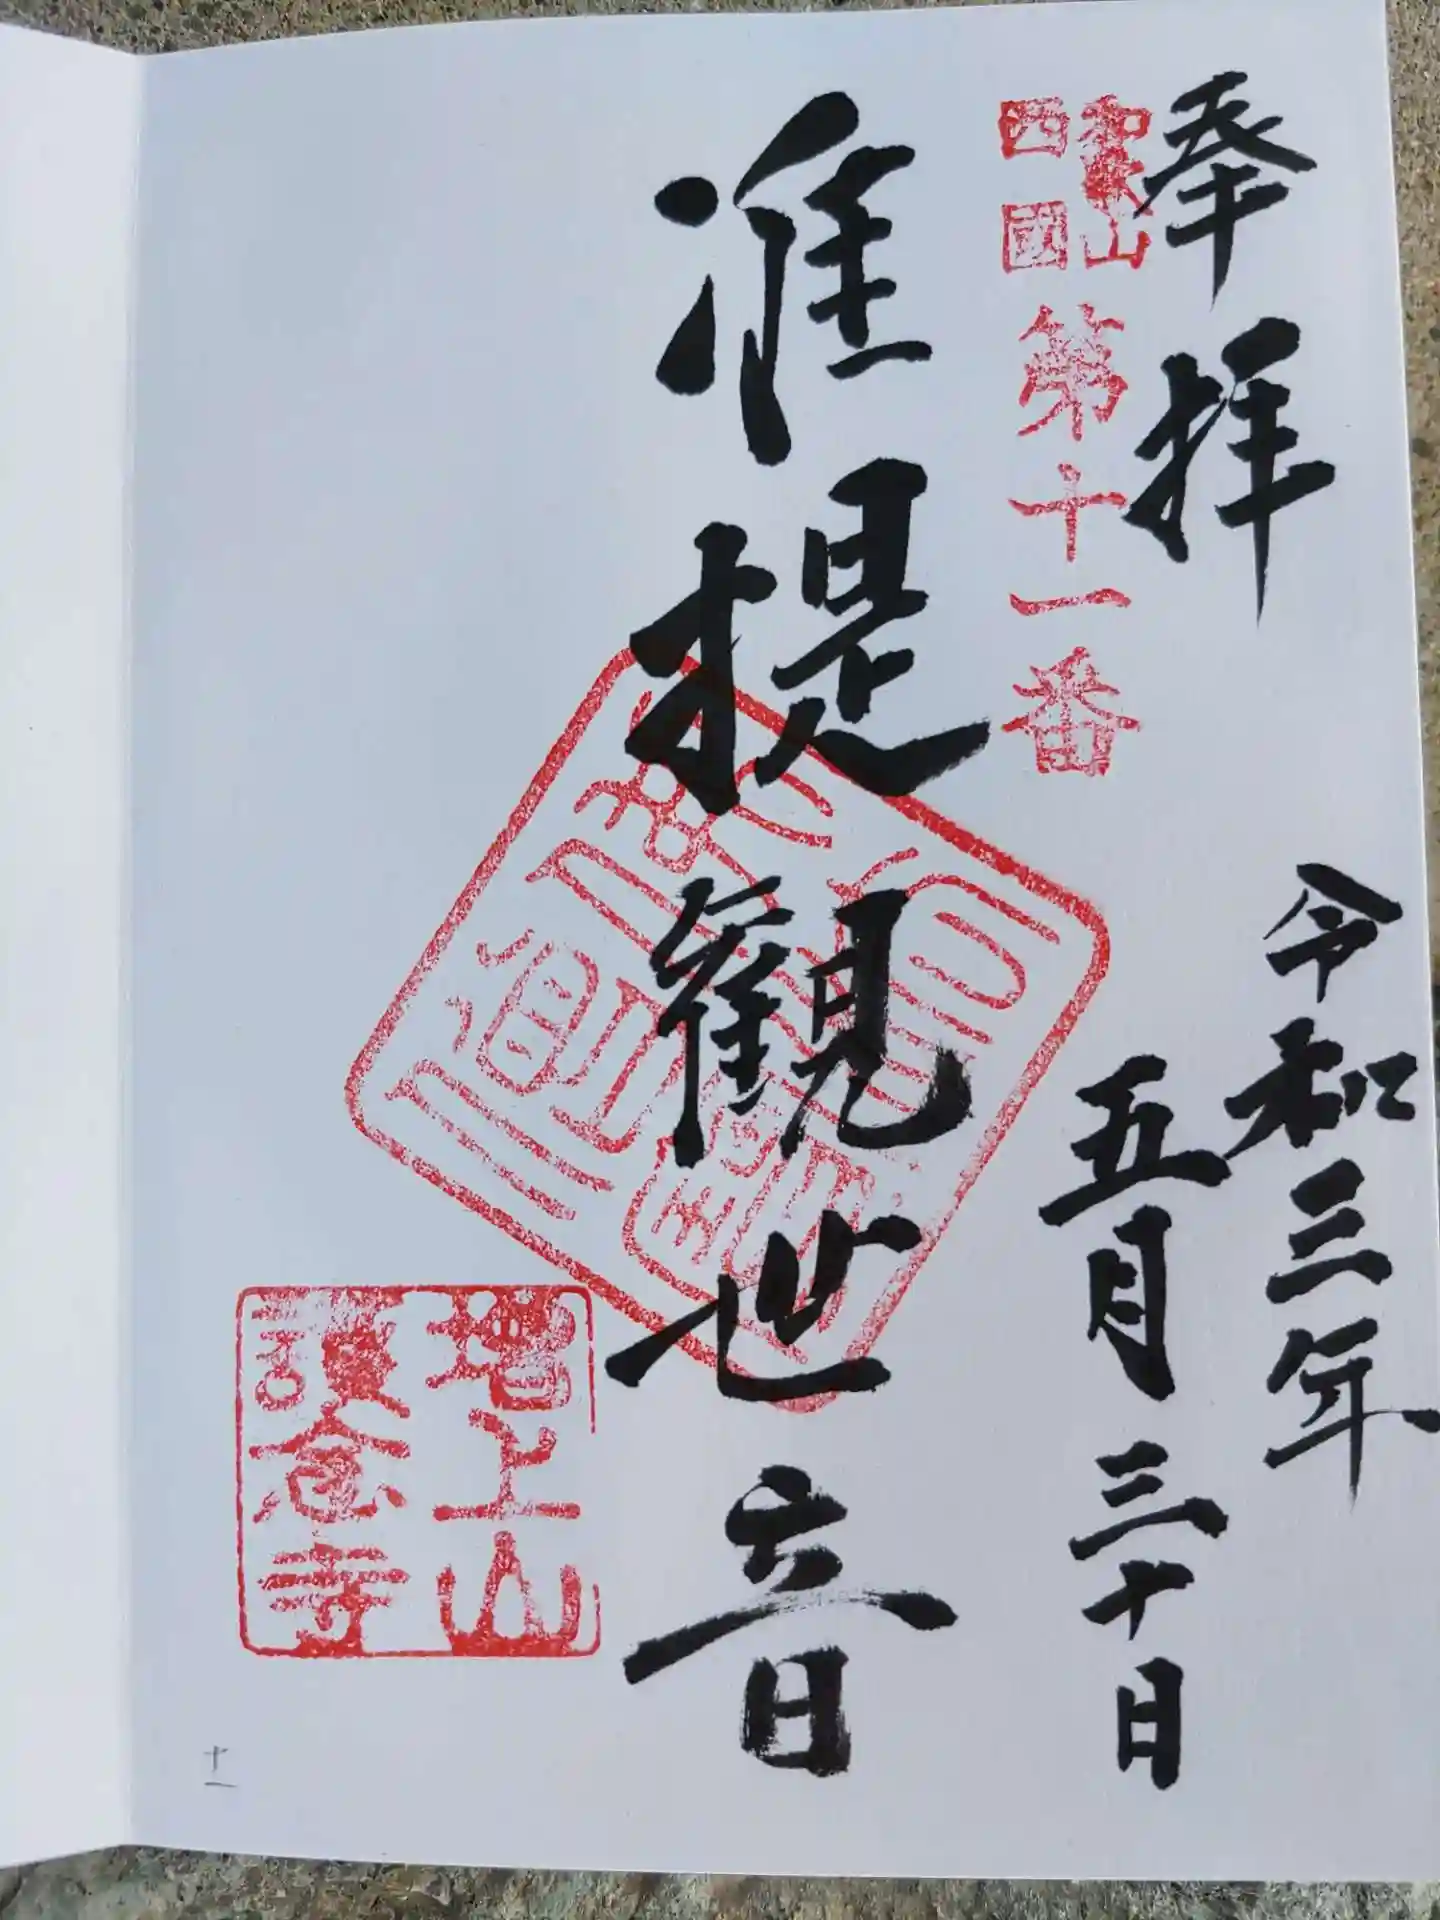 奉拝
令和三年
五月三十日
和歌山
西國
第十一番
准提観世音
増上山
護念寺
十一